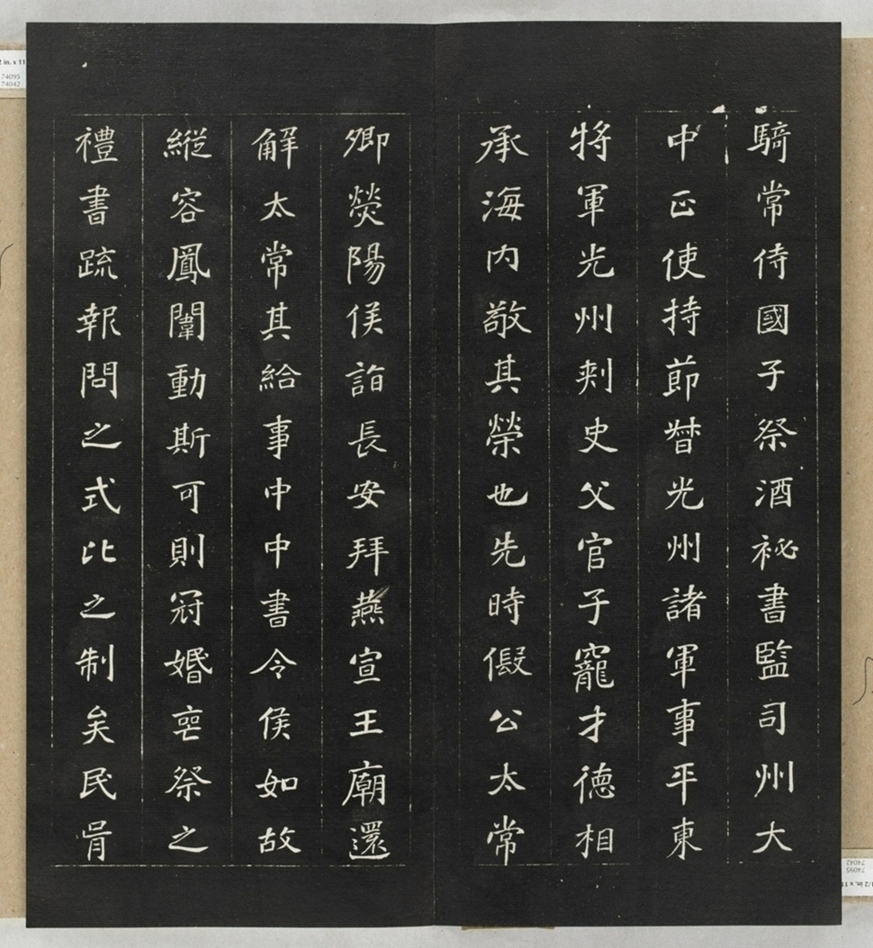 騎常侍國子祭酒祕書監司州大
中正使持節督光州諸軍事平東
將軍光州刾史父官子寵才德相
承海内敬其榮也先時假公太常
卿熒陽侯詣長安拜燕宣王廟還
解太常其給事中中書令侯如故
縱容鳳闈動斯可則冠婚喪祭之
禮書疏報問之式比之制矣民胥
74095
74042